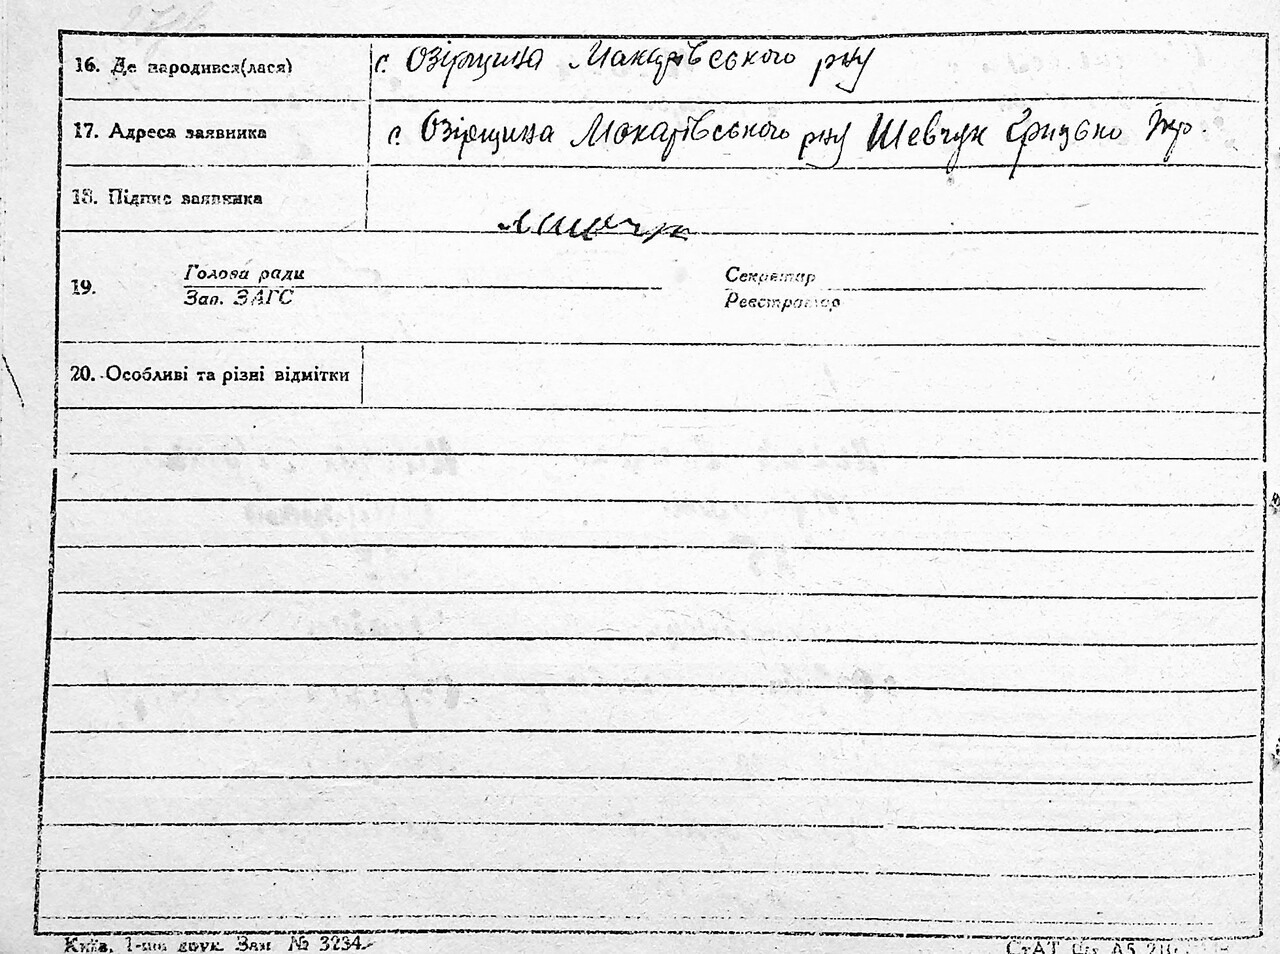 16. Де народився(лася) с. Озірщина Макарівського рну
17. Адреса заявника с. Озірщина Макарівського рну Шевчук Грицько
18. Підпис заявника
19. Голова ради Секретар
Зав. ЗАГС Реєстратор
20. Особливі та різні відмітки
Київ, 1-ша друк. Зам. № 3234.